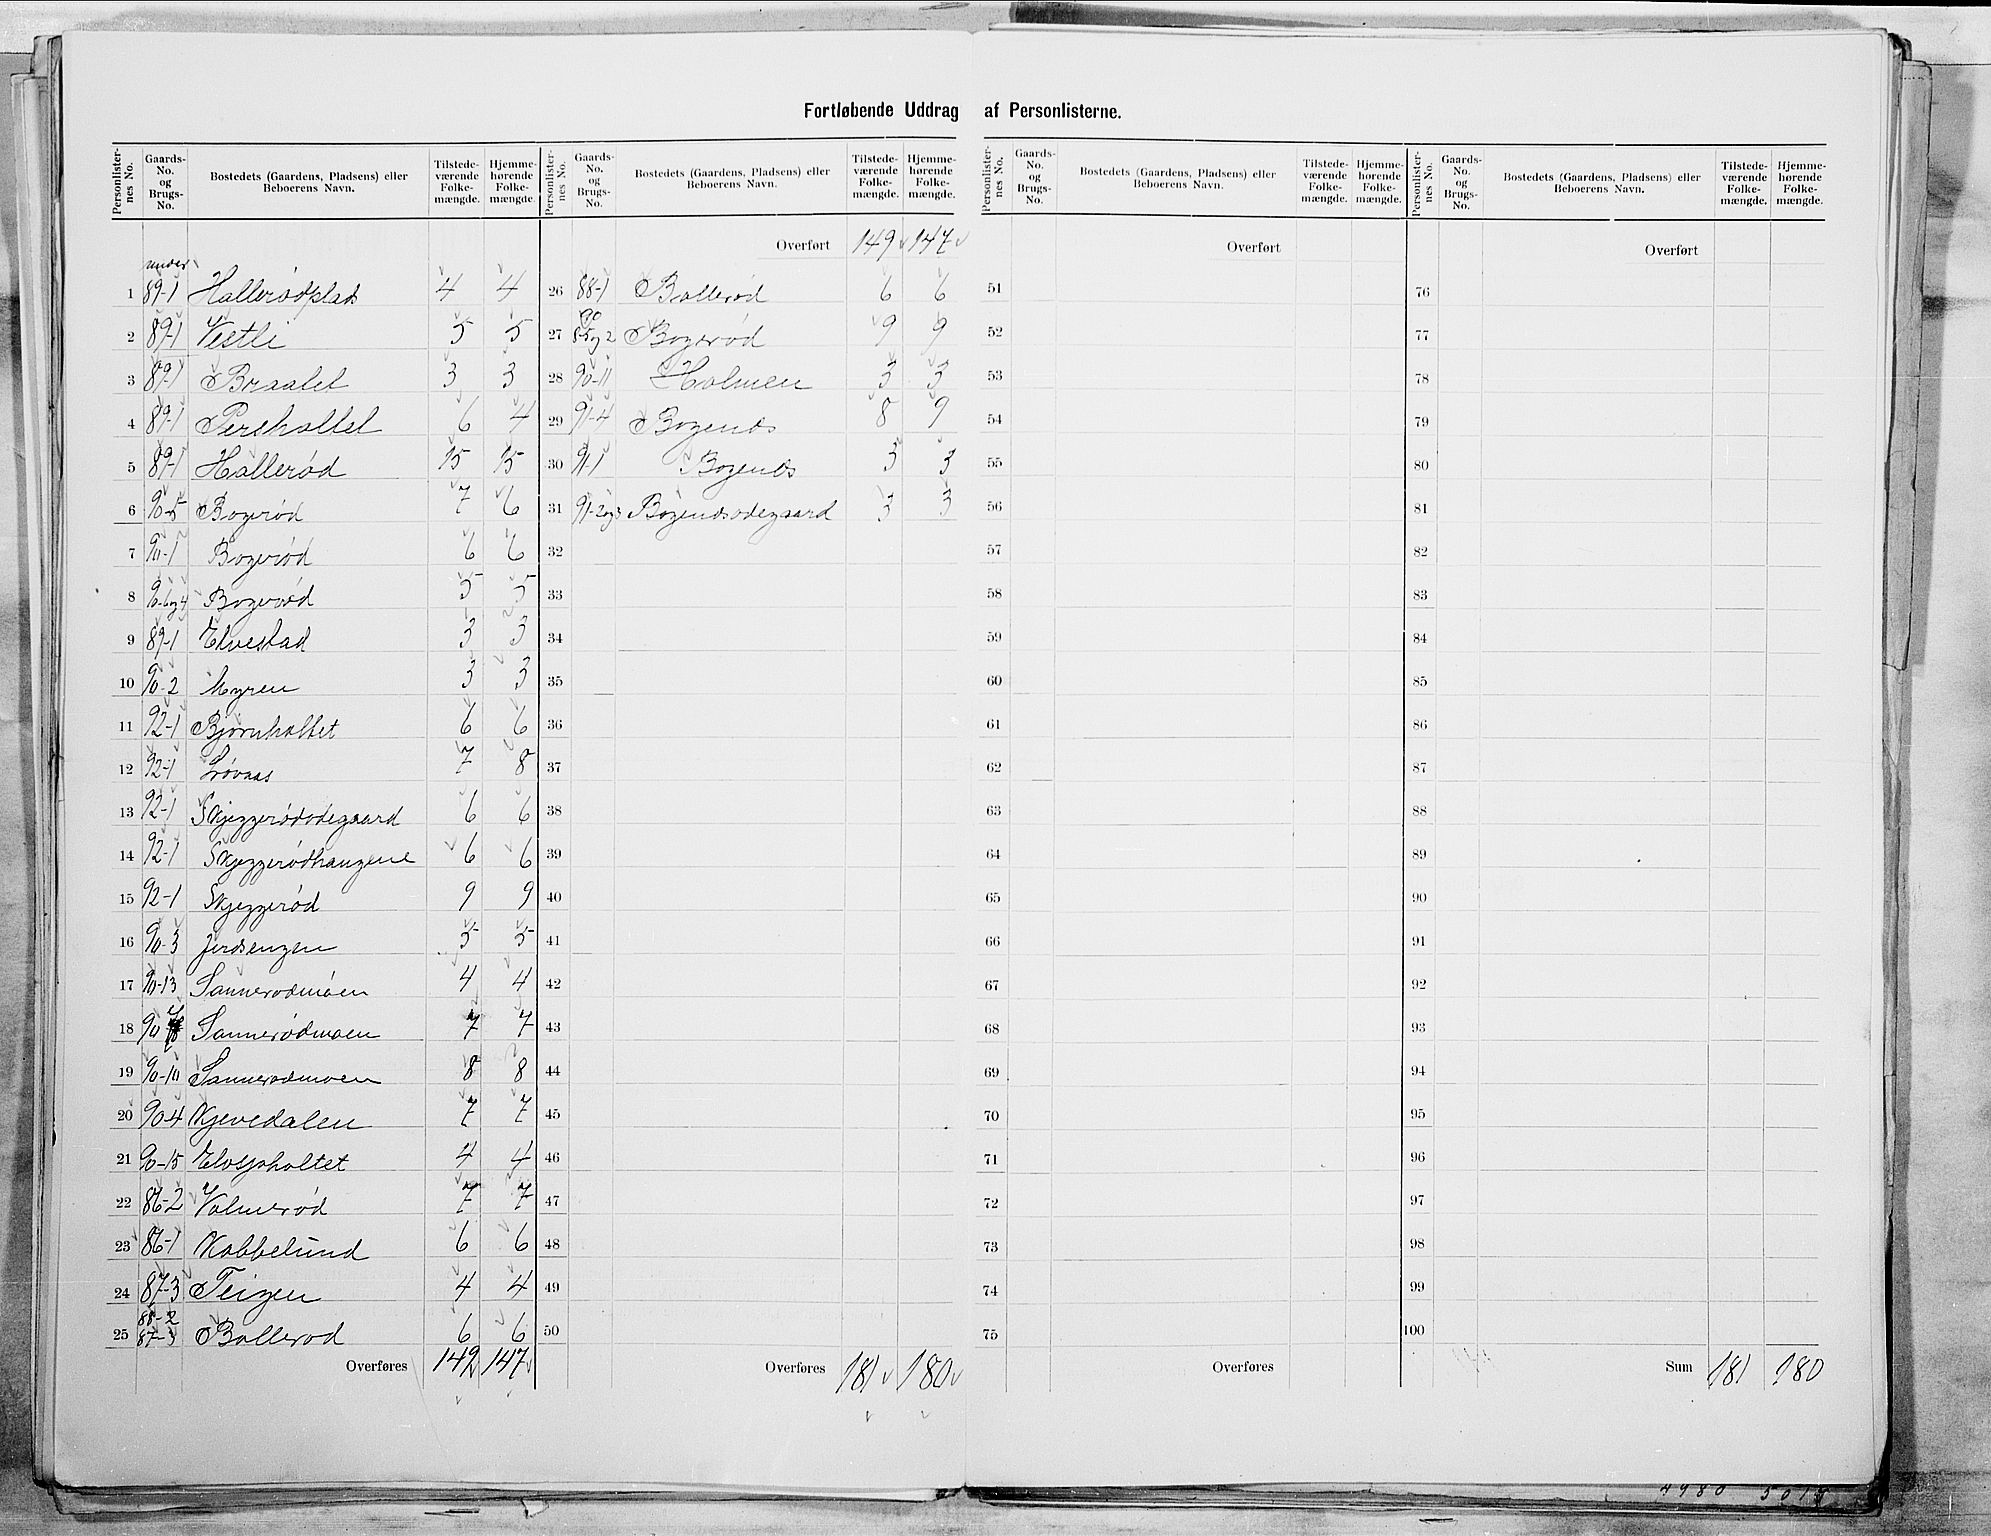 Fortløbende Uddrag af Personlisterne.
Personlisternes No. | Gaards-No. og Brugs-No. | Bostedets (Gaardens, Pladsens) eller Beboerens Navn. | Tilstedeværende Folkemængde. | Hjemmehørende Folkemængde.
under
1 89-1 Hallerødplads 4 4
2 89-1 Vestli 5 5
3 89-1 Braatet 3 3
4 89-1 Pereholtet 6 4
5 89-1 Hallerød 15 15
6 90-5 Bogerød 7 6
7 90-1 Bogerød 6 6
8 90-6og4 Bogerød 5 5
9 89-1 Elvestad 3 3
10 90-2 Myren 3 3
11 92-1 Bjørnholtet 6 6
12 92-1 Løvaas 7 8
13 92-1 Skjeggerødødegaard 6 6
14 92-1 Skjeggerødhaugene 6 6
15 92-1 Skjeggerød 9 9
16 90-3 Jerdsengen 5 5
17 90-13 Sannerødmoen 4 4
18 90- Sannerødmoen 7 7
19 90-10 Sannerødmoen 8 8
20 90-4 Kjevedalen 7 7
21 90-15 Elvesjøholtet 4 4
22 86-2 Valmerød 7 7
23 86-1 Kabbelund 6 6
24 87-3 Teigen 4 4
88-2
25 87-3 Bollerød 6 6
Overføres 142 147
Personlisternes No. | Gaards-No. og Brugs-No. | Bostedets (Gaardens, Pladsens) eller Beboerens Navn. | Tilstedeværende Folkemængde. | Hjemmehørende Folkemængde.
Overført 149 147
26 88-1 Bollerød 6 6
90
27 8-5og2 Bogerød 9 9
28 90-11 Holmen 3 3
29 91-4 Bogends 8 9
30 91-1 Bogends 3 3
31 91-2og3 Bogendsødegaard 3 3
32
33
34
35
36
37
38
39
40
41
42
43
44
45
46
47
48
49
50
Overføres 181 180
Personlisternes No. | Gaards-No. og Brugs-No. | Bostedets (Gaardens, Pladsens) eller Beboerens Navn. | Tilstedeværende Folkemængde. | Hjemmehørende Folkemængde.
Overført
51
52
53
54
55
56
57
58
59
60
61
62
63
64
65
66
67
68
69
70
71
72
73
74
75
Overføres
Personlisternes No. | Gaards-No. og Brugs-No. | Bostedets (Gaardens, Pladsens) eller Beboerens Navn. | Tilstedeværende Folkemængde. | Hjemmehørende Folkemængde.
Overført
76
77
78
79
80
81
82
83
84
85
86
87
88
89
90
91
92
93
94
95
96
97
98
99
100
Sum 181 180